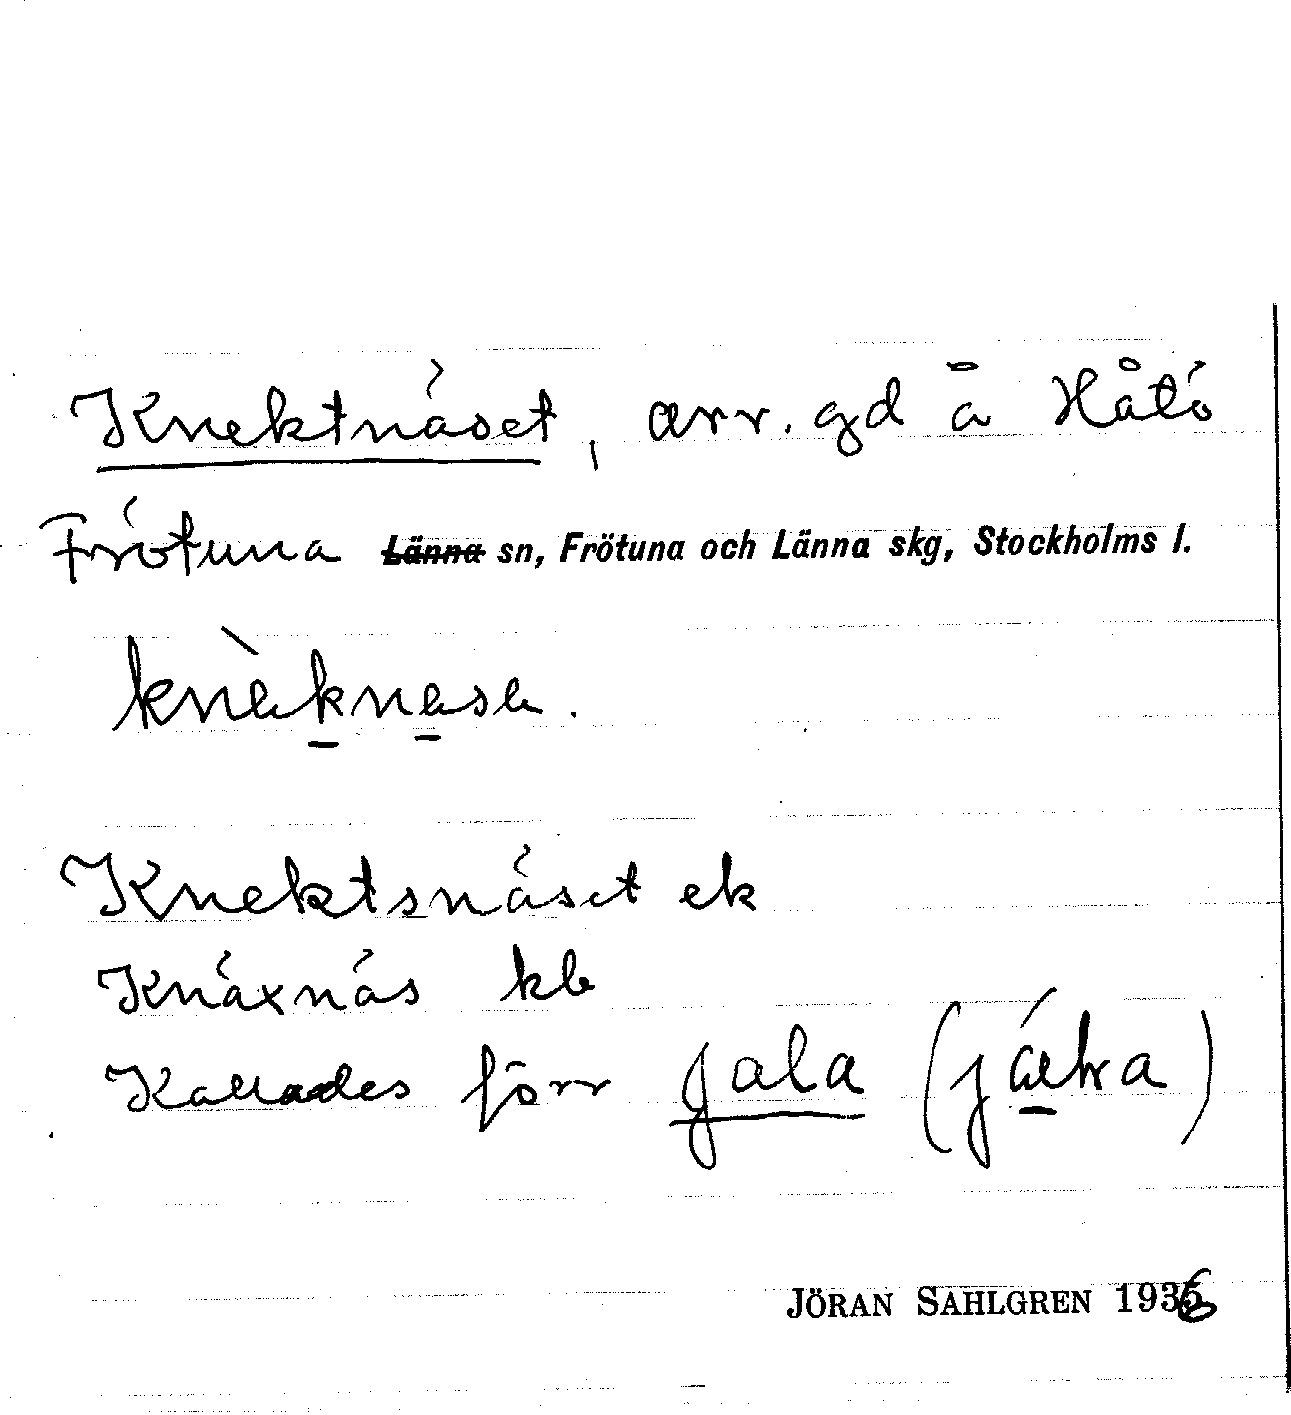 Knektnäset, arr. gd å Håtö
Frötuna Länna sn, Frötuna och Länna skg, Stockholms l.
knèknese.
Knektsnäset ek
Knäxnäs kb
Kallades förr Jala
JÖRAN SAHLGREN 1936